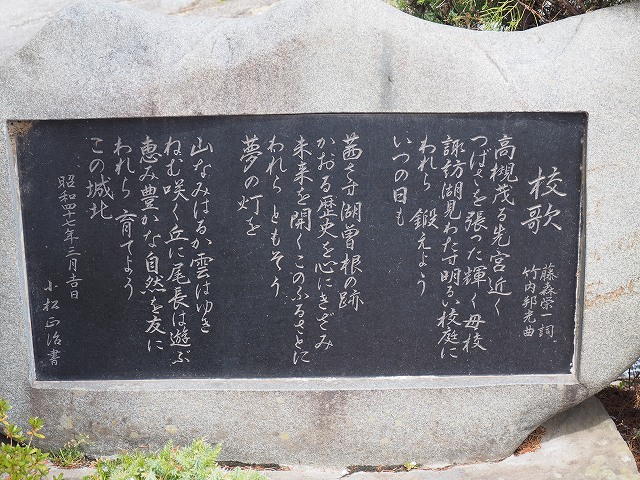 校歌
藤森栄一詞
竹内邦光曲
高槻茂る先宮近く
つばさを張った輝く母校
諏訪湖見わたす明るい校庭に
われら 鍛えよう
いつの日も
茜さす湖曽根の跡
かおる歴史を心にきざみ
未来を開くこのふるさとに
われら ともそう
夢の灯を
山なみはるか雲はゆき
ねむ咲く丘に尾長は遊ぶ
恵み豊かな自然を友に
われら 育てよう
この城北
昭和四十六年三月吉日
小松正治書